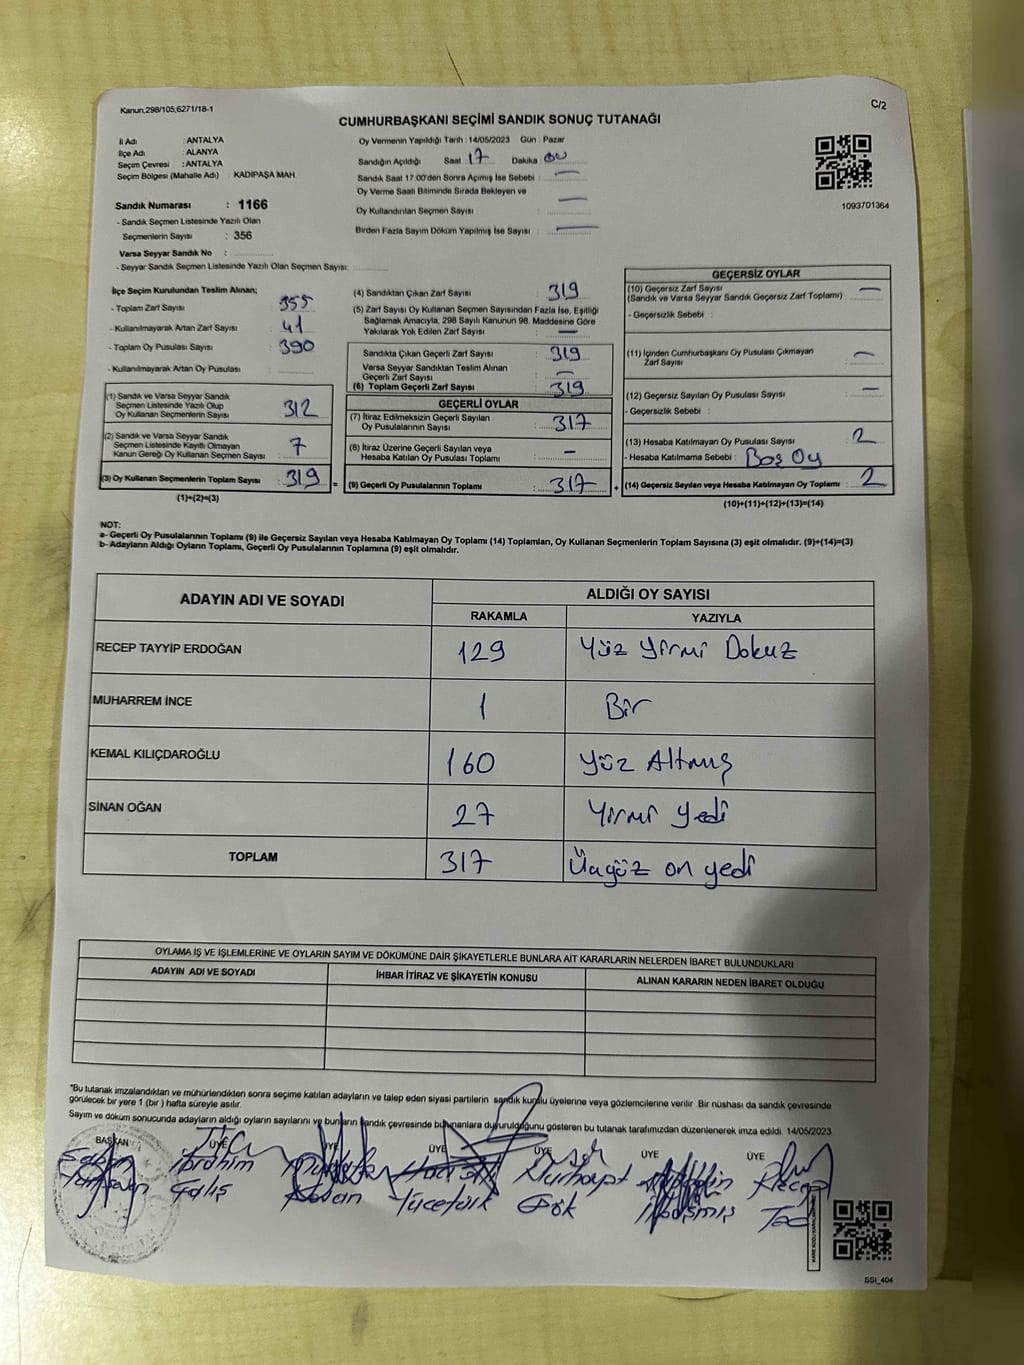 Kanun;298/105,6271/18-1
C/2
CUMHURBAŞKANI SEÇİMİ SANDIK SONUÇ TUTANAĞI
İl Adı : ANTALYA
İlçe Adı : ALANYA
Seçim Çevresi : ANTALYA
Seçim Bölgesi (Mahalle Adı) : KADIPAŞA MAH
Sandık Numarası : 1166
- Sandık Seçmen Listesinde Yazılı Olan
Seçmenlerin Sayısı : 356
Varsa Seyyar Sandık No :
- Seyyar Sandık Seçmen Listesinde Yazılı Olan Seçmen Sayısı:
Oy Vermenin Yapıldığı Tarih : 14/05/2023 Gün : Pazar
Sandığın Açıldığı Saat 17 Dakika 00
Sandık Saat 17:00'den Sonra Açımış İse Sebebi : —
Oy Verme Saati Bitiminde Sırada Bekleyen ve
Oy Kullandırılan Seçmen Sayısı : —
Birden Fazla Sayım Döküm Yapılmış İse Sayısı : —
1093701364
İlçe Seçim Kurulundan Teslim Alınan;
- Toplam Zarf Sayısı : 355
- Kullanılmayarak Artan Zarf Sayısı : 41
- Toplam Oy Pusulası Sayısı : 390
- Kullanılmayarak Artan Oy Pusulası :
(1) Sandık ve Varsa Seyyar Sandık
Seçmen Listesinde Yazılı Olup
Oy Kullanan Seçmenlerin Sayısı : 312
(2) Sandık ve Varsa Seyyar Sandık
Seçmen Listesinde Kayıtlı Olmayan
Kanun Gereği Oy Kullanan Seçmen Sayısı : 7
(3) Oy Kullanan Seçmenlerin Toplam Sayısı : 319
(1)+(2)=(3)
(4) Sandıktan Çıkan Zarf Sayısı : 319
(5) Zarf Sayısı Oy Kullanan Seçmen Sayısından Fazla İse, Eşitliği
Sağlamak Amacıyla, 298 Sayılı Kanunun 98. Maddesine Göre
Yakılarak Yok Edilen Zarf Sayısı : —
Sandıkta Çıkan Geçerli Zarf Sayısı : 319
Varsa Seyyar Sandıktan Teslim Alınan
Geçerli Zarf Sayısı : —
(6) Toplam Geçerli Zarf Sayısı : 319
=
GEÇERLİ OYLAR
(7) İtiraz Edilmeksizin Geçerli Sayılan
Oy Pusulalarının Sayısı : 317
(8) İtiraz Üzerine Geçerli Sayılan veya
Hesaba Katılan Oy Pusulası Toplamı : —
(9) Geçerli Oy Pusulalarının Toplamı : 317
+
GEÇERSİZ OYLAR
(10) Geçersiz Zarf Sayısı : —
(Sandık ve Varsa Seyyar Sandık Geçersiz Zarf Toplamı)
- Geçersizlik Sebebi :
(11) İçinden Cumhurbaşkanı Oy Pusulası Çıkmayan
Zarf Sayısı : —
(12) Geçersiz Sayılan Oy Pusulası Sayısı : —
- Geçersizlik Sebebi :
(13) Hesaba Katılmayan Oy Pusulası Sayısı : 2
- Hesaba Katılmama Sebebi : Boş Oy
(14) Geçersiz Sayılan veya Hesaba Katılmayan Oy Toplamı : 2
(10)+(11)+(12)+(13)=(14)
NOT:
a- Geçerli Oy Pusulalarının Toplamı (9) ile Geçersiz Sayılan veya Hesaba Katılmayan Oy Toplamı (14) Toplamları, Oy Kullanan Seçmenlerin Toplam Sayısına (3) eşit olmalıdır. (9)+(14)=(3)
b- Adayların Aldığı Oyların Toplamı, Geçerli Oy Pusulalarının Toplamına (9) eşit olmalıdır.
ADAYIN ADI VE SOYADI
ALDIĞI OY SAYISI
RAKAMLA YAZIYLA
RECEP TAYYİP ERDOĞAN 129 Yüz Yirmi Dokuz
MUHARREM İNCE 1 Bir
KEMAL KILIÇDAROĞLU 160 Yüz Altmış
SİNAN OĞAN 27 Yirmi Yedi
TOPLAM 317 Üçyüz on yedi
OYLAMA İŞ VE İŞLEMLERİNE VE OYLARIN SAYIM VE DÖKÜMÜNE DAİR ŞİKAYETLERLE BUNLARA AİT KARARLARIN NELERDEN İBARET BULUNDUKLARI
ADAYIN ADI VE SOYADI İHBAR İTİRAZ VE ŞİKAYETİN KONUSU ALINAN KARARIN NEDEN İBARET OLDUĞU
"Bu tutanak imzalandıktan ve mühürlendikten sonra seçime katılan adayların ve talep eden siyasi partilerin sandık kurulu üyelerine veya gözlemcilerine verilir. Bir nüshası da sandık çevresinde
görülecek bir yere 1 (bir) hafta süreyle asılır.
Sayım ve döküm sonucunda adayların aldığı oyların sayılarını ve bunların sandık çevresinde bulunanlara duyurulduğunu gösteren bu tutanak tarafımızdan düzenlenerek imza edildi. 14/05/2023
BAŞKAN ÜYE ÜYE ÜYE ÜYE ÜYE ÜYE
İbrahim Nurhayat Recep
Galış Yücetürk Gök
SSI_404